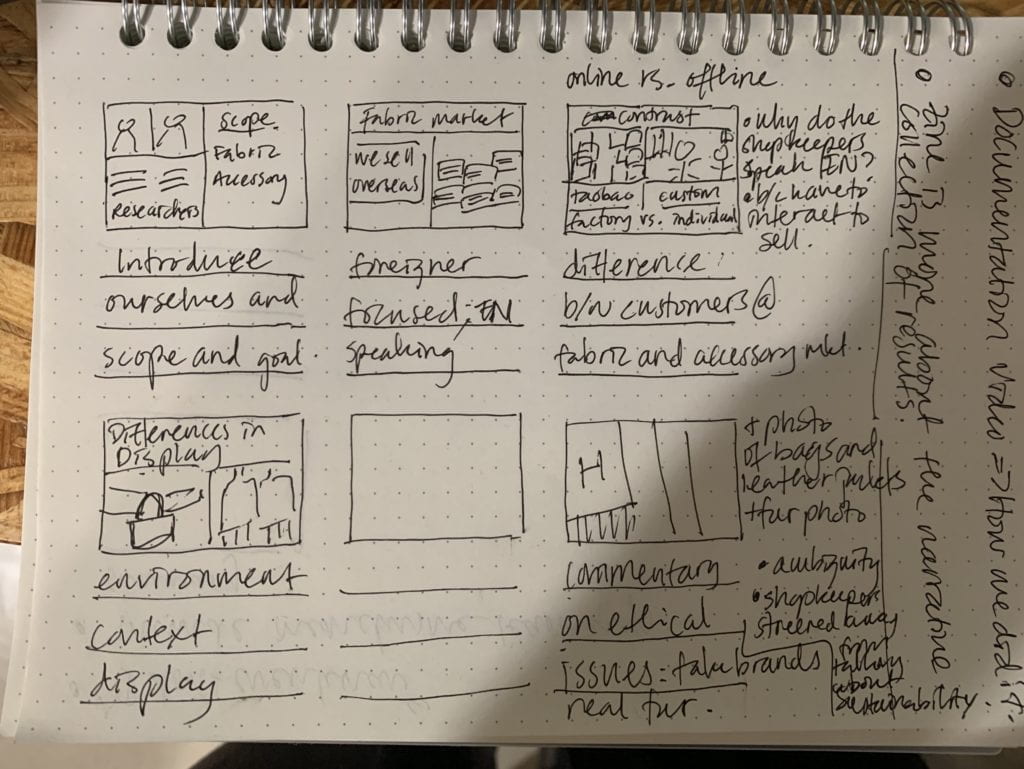 online vs. offline
scope
Fabric
Accessory
Researchers
Introduce
ourselves and
scope and goal.
Fabric market
we sell
overseas
foreigner
focused: EN
speaking
contrast
taobao custom
factory vs. individual
• why do the
shopkeepers
speak EN?
• b/c have to
interact to
sell.
difference:
b/w customers @
fabric and accessory mkt.
Differences in
Display
environment
context
display
H
+ photo
of bags and
leather jackets
+ fur photo
commentary
on ethical
issues: fake brands
real fur.
• ambiguity
• shopkeepers
steered away
from
talking
about
sustainability.
• Documentation video => How we did it.
• Zine is more about the narrative
collection of results.